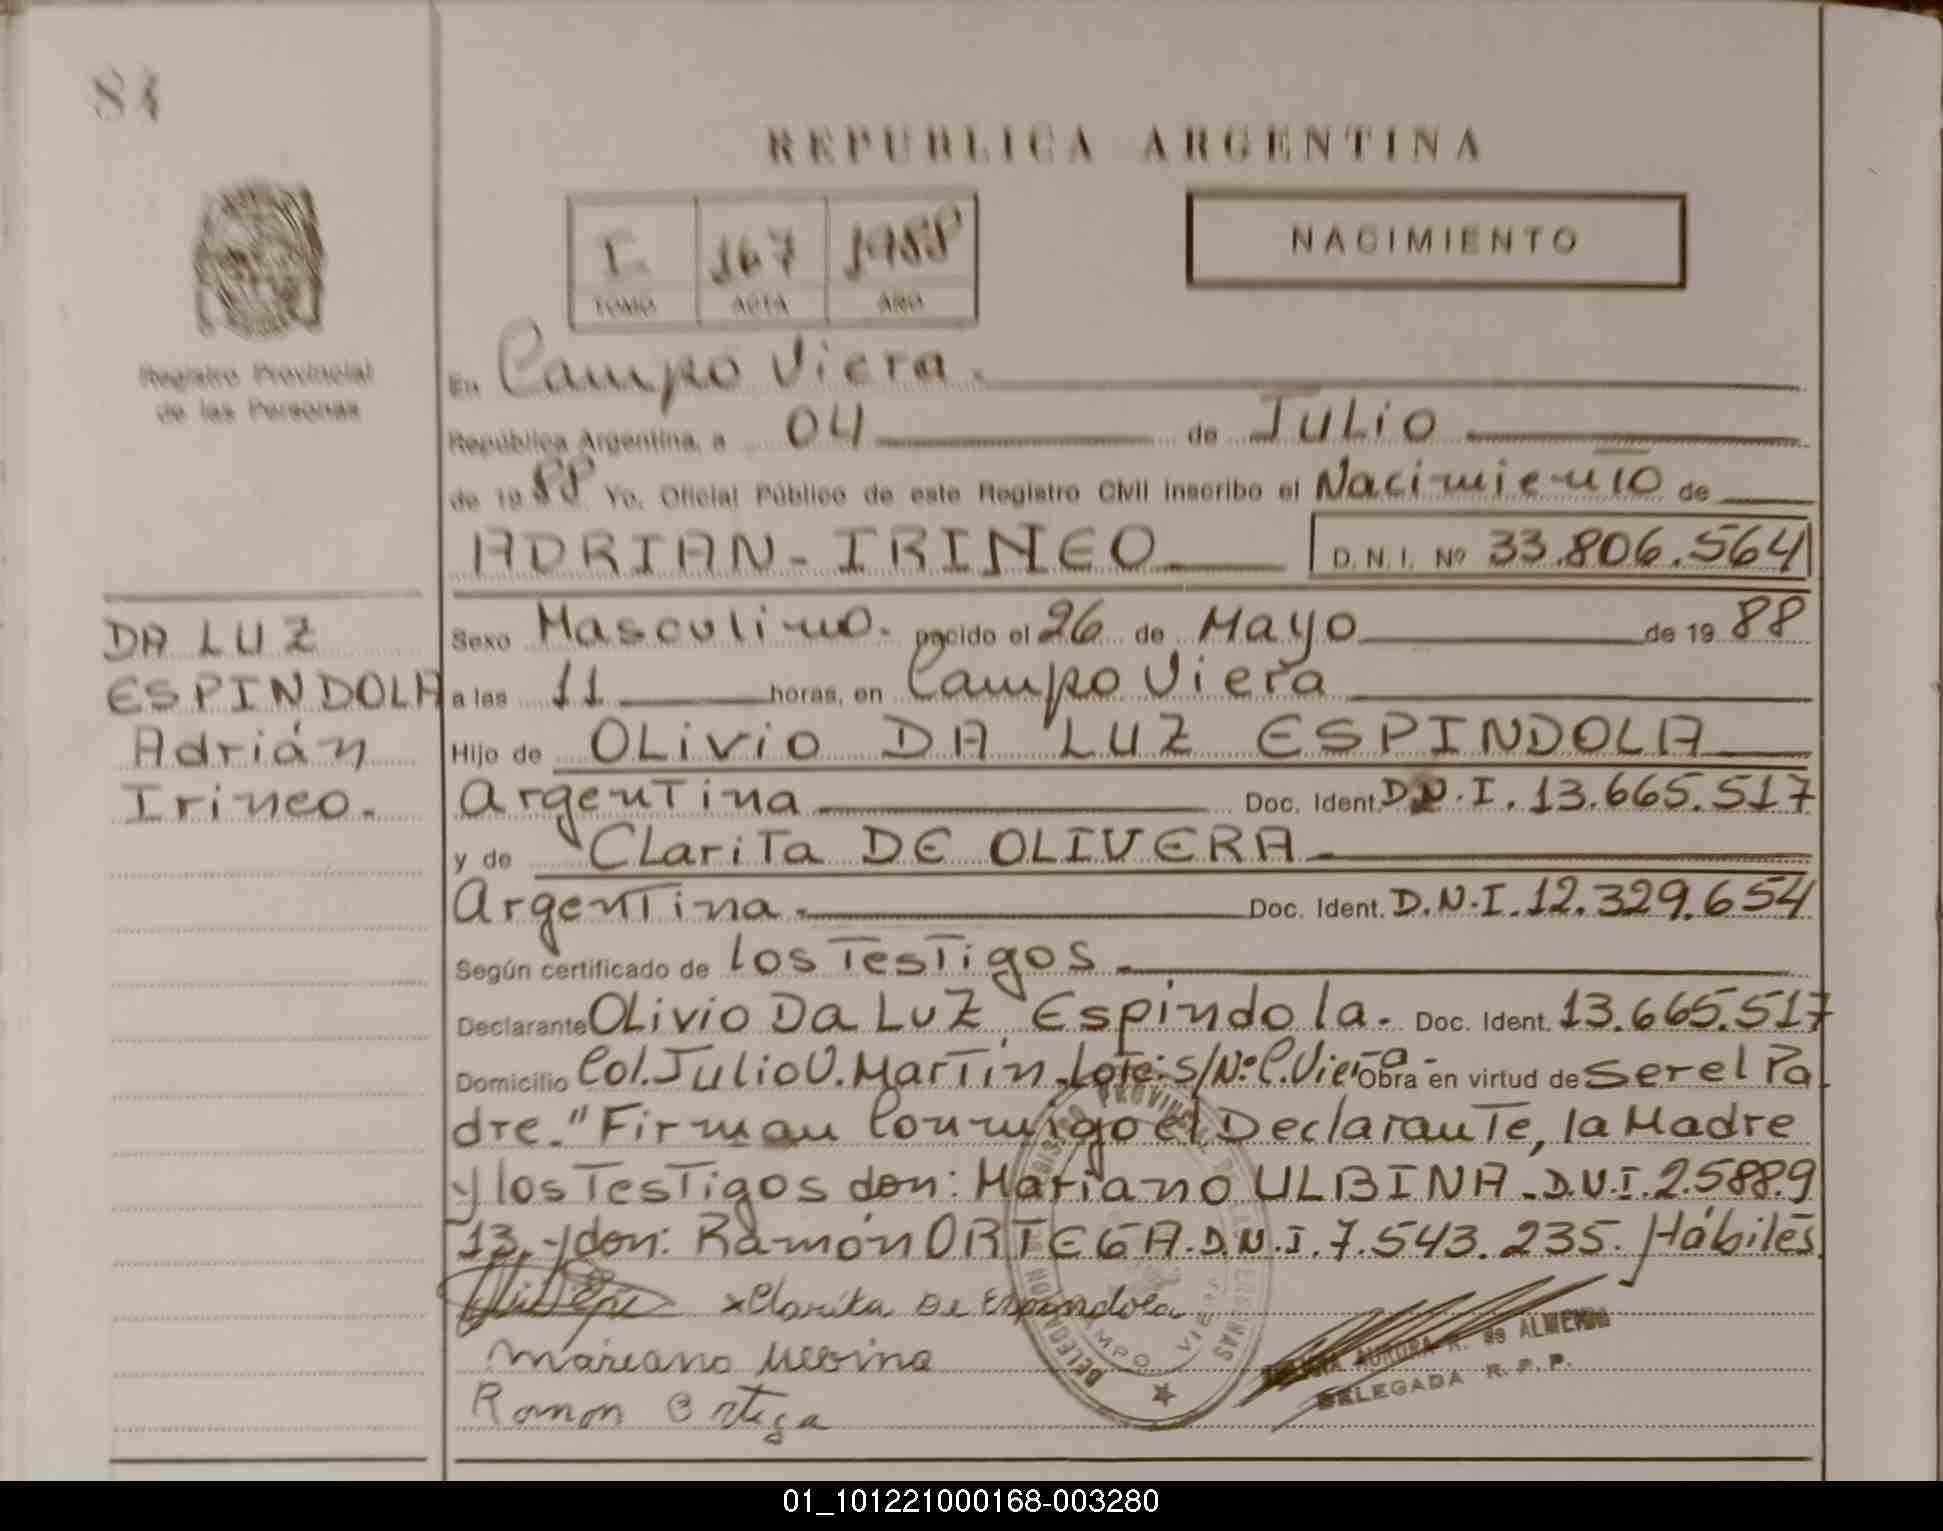 84
REPUBLICA ARGENTINA
I 167 1988
TOMO ACTA AÑO
NACIMIENTO
Registro Provincial
de las Personas
En Campo Viera.
República Argentina, a 04 de Julio
de 1988 Yo, Oficial Público de este Registro Civil inscribo el Nacimiento de
ADRIAN-IRINEO D.N.I. Nº 33.806.564
DA LUZ
ESPINDOLA
Adrián
Irineo.
Sexo Masculino. nacido el 26 de Mayo de 1988
a las 11 horas, en Campo Viera
Hijo de OLivio DA LUZ ESPINDOLA
Argentina Doc. Ident. D.N.I. 13.665.517
y de CLarita DE OLIVERA
Argentina. Doc. Ident. D.N.I. 12.329.654
Según certificado de los Testigos.
Declarante OLivio Da Luz Espindola. Doc. Ident. 13.665.517
Domicilio Col. Julio U. Martín. Lote: s/Nº C. Viera- Obra en virtud de Ser el Pa
dre. "Firman Conmigo el Declarante, la Madre
y los Testigos don: Mariano ULBINA. D.N.I. 2.5889
13. y don: Ramón ORTEGA. D.N.I. 7.543.235. Hábiles
x Clarita De Espindola
Ramon Ortega
AURORA R. de ALMEIDA
DELEGADA R. P. P.
01_101221000168-003280